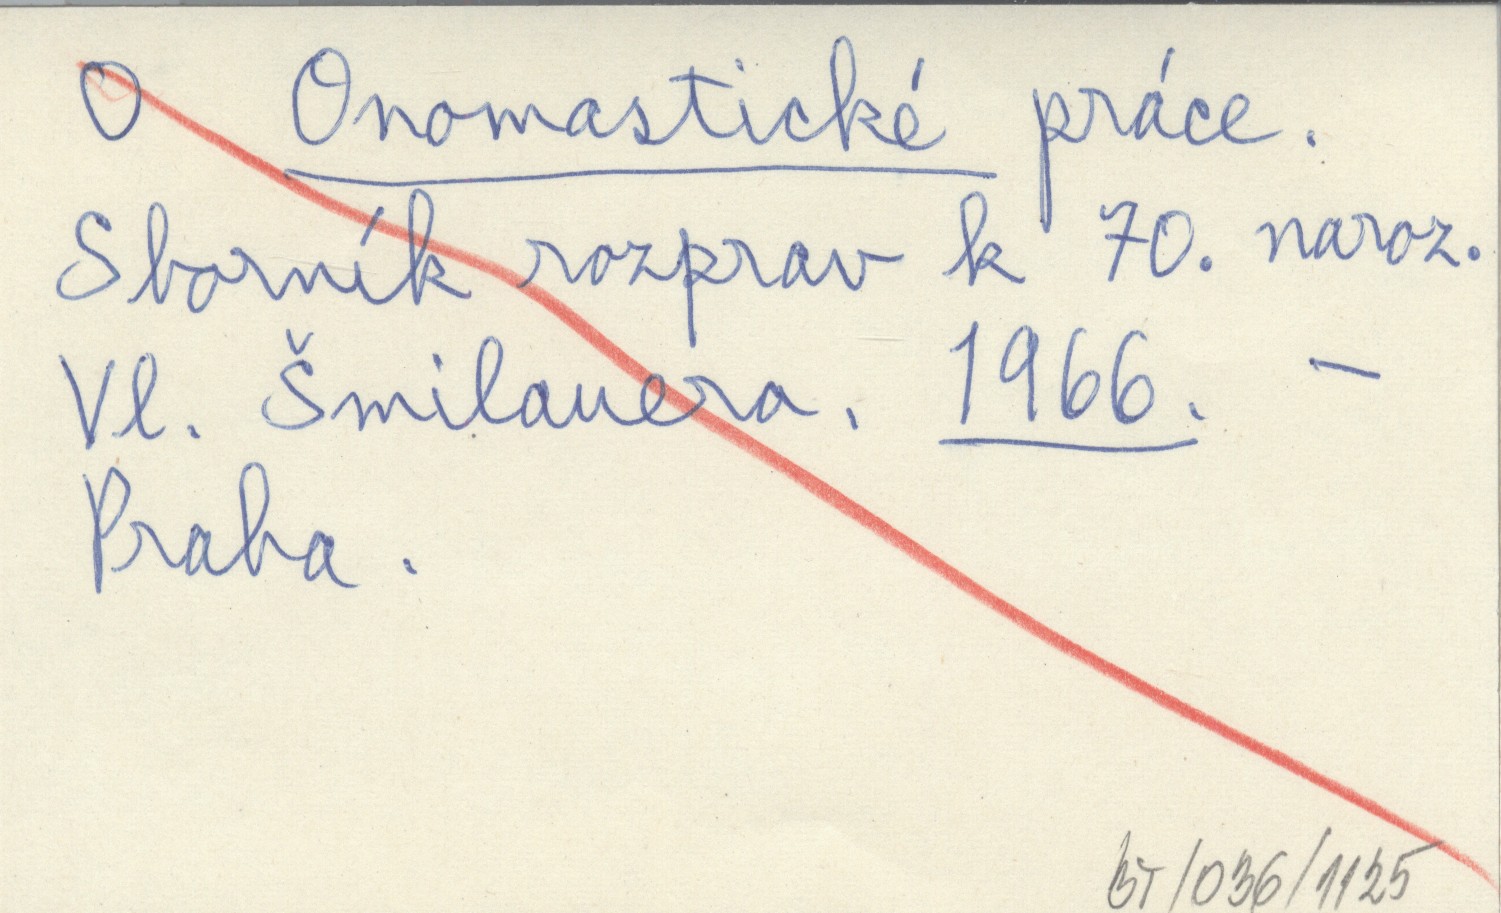 O Onomastické práce.
Sborník rozprav k 70. naroz.
Vl. Šmilauera. 1966. –
Praha.
BT/036/1125